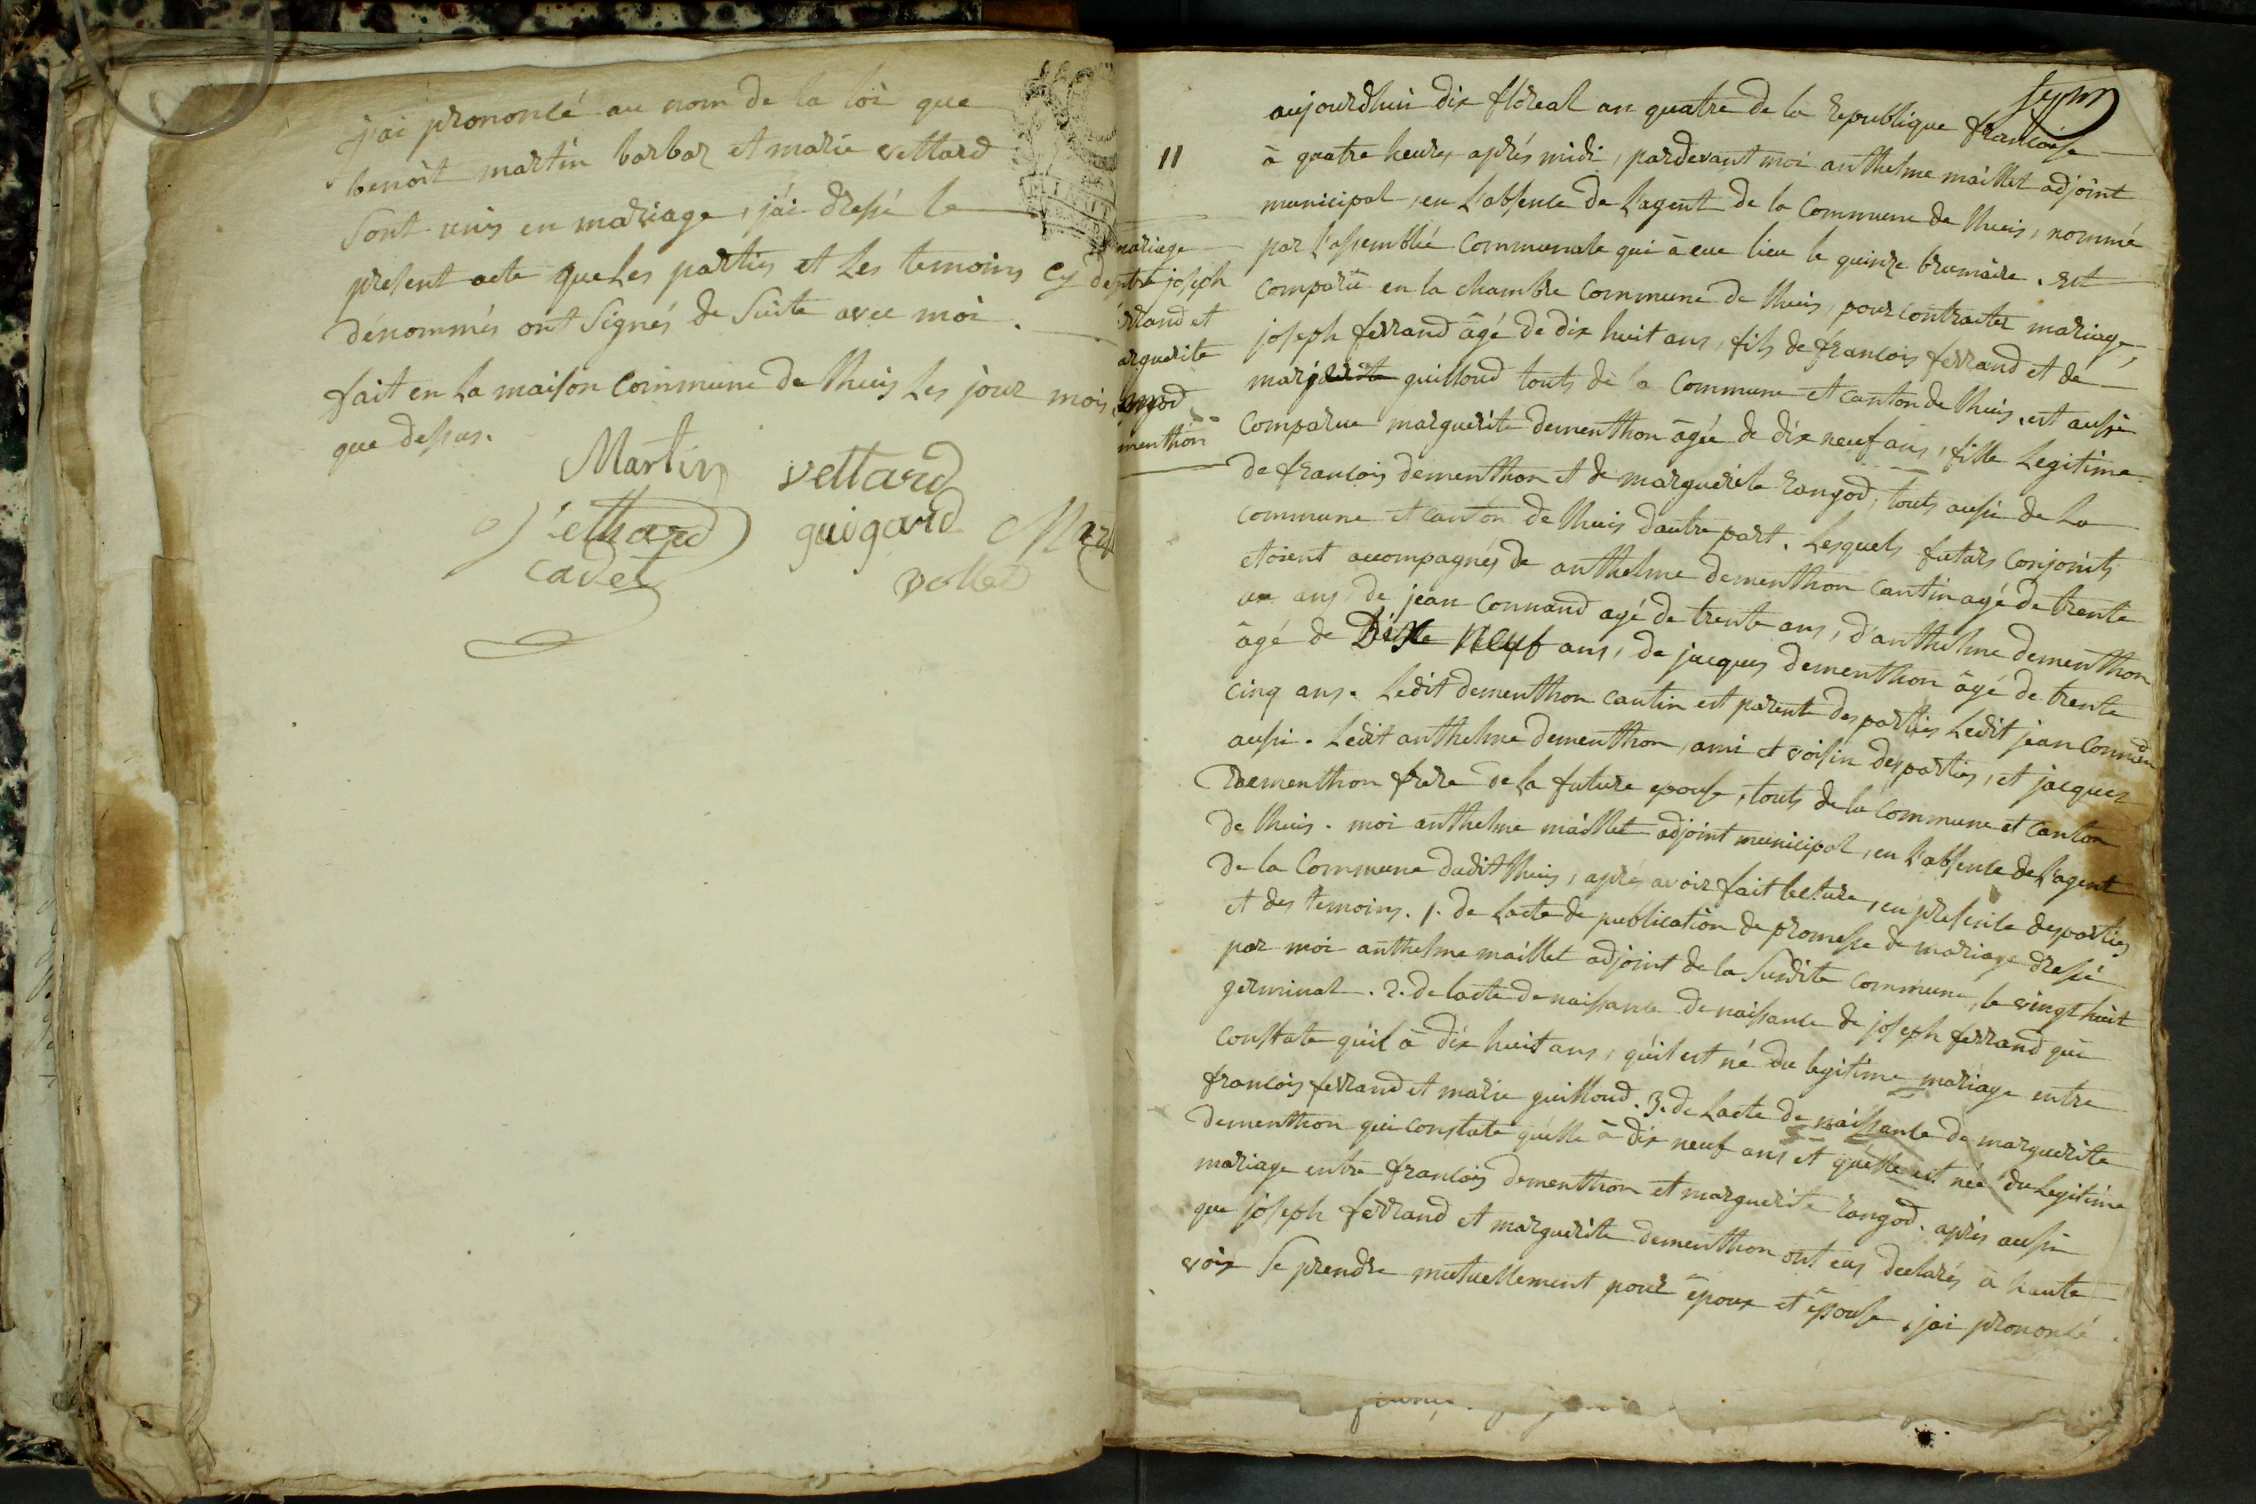 j'ai prononcé au nom de la loi que
benoit martin barbar et marie vettard
Sont unis en mariage, j'ai dressé le
présent acte que Les parties et Les temoins Cy d
dénommés ont Signés de Suite avec moi.
fait en La maison Commune de Lhuis Les jour mois
que dessus.
Martin vettard
Vethard guigard
cadet
11
mariage
entre joseph
ferrand et
marguerite
menthon
aujourdhui dix floreal an quatre de la Republique francoise
à quatre heures aprés midi, pardevant moi anthelme maillet adjoint
municipal, en L'absence de L'agent de la Commune de Lhuis, nommé
par l'assemblée Communale qui à eue lieu le quinze brumaire. est
Comparü en la chambre Commune de Lhuis, pour Contracter mariage,
joseph ferrand âgé de dix huit ans, fils de francois ferrand et de
guilloud touts de la Commune et canton de Lhuis. est aussi
Comparue marguerite dementhon âgée de dix neuf ans, fille Legitime
de francois dementhon et de marguerite rangod, touts aussi de La
Commune et canton de Lhuis dautre part. Lesquels futurs Conjoints
etoient accompagnés de anthelme dementhon cantin agé de trente
ans, de jean Connand agé de trente ans, d'anthelme dementhon
âgé de Dixe Neuf ans, de jacques dementhon âgé de trente
cinq ans. Ledit dementhon cantin est parent des parties Ledit jean Connand
aussi. Ledit anthelme dementhon, ami et voisin des parties, et jacques
Dementhon frere de La future epouse, touts de la Commune et Canton
de Lhuis. moi anthelme maillet adjoint municipal, en L'absence de L'agent
de la Commune dudit Lhuis, aprés avoir fait lecture, en presence des parties
et des temoins. 1. de Lacte de publication de promesse de mariage dressé
par moi anthelme maillet adjoint de la Susdite Commune, le vingt huit
germinal. 2. de lacte de naissance de naissance de joseph ferrand qui
Constate qu'il à dix huit ans, qu'il est né du legitime mariage entre
francois ferrand et marie guilloud. 3. de Lacte de naissance de marguerite
dementhon qui constate qu'elle à dix neuf ans et qu'elle est née du Legitime
mariage entre francois dementhon et marguerite rangod. aprés aussi
que joseph ferrand et marguerite dementhon ont eus declarés à haute
voix Se prendre mutuellement pour époux et épouse, j'ai prononcé